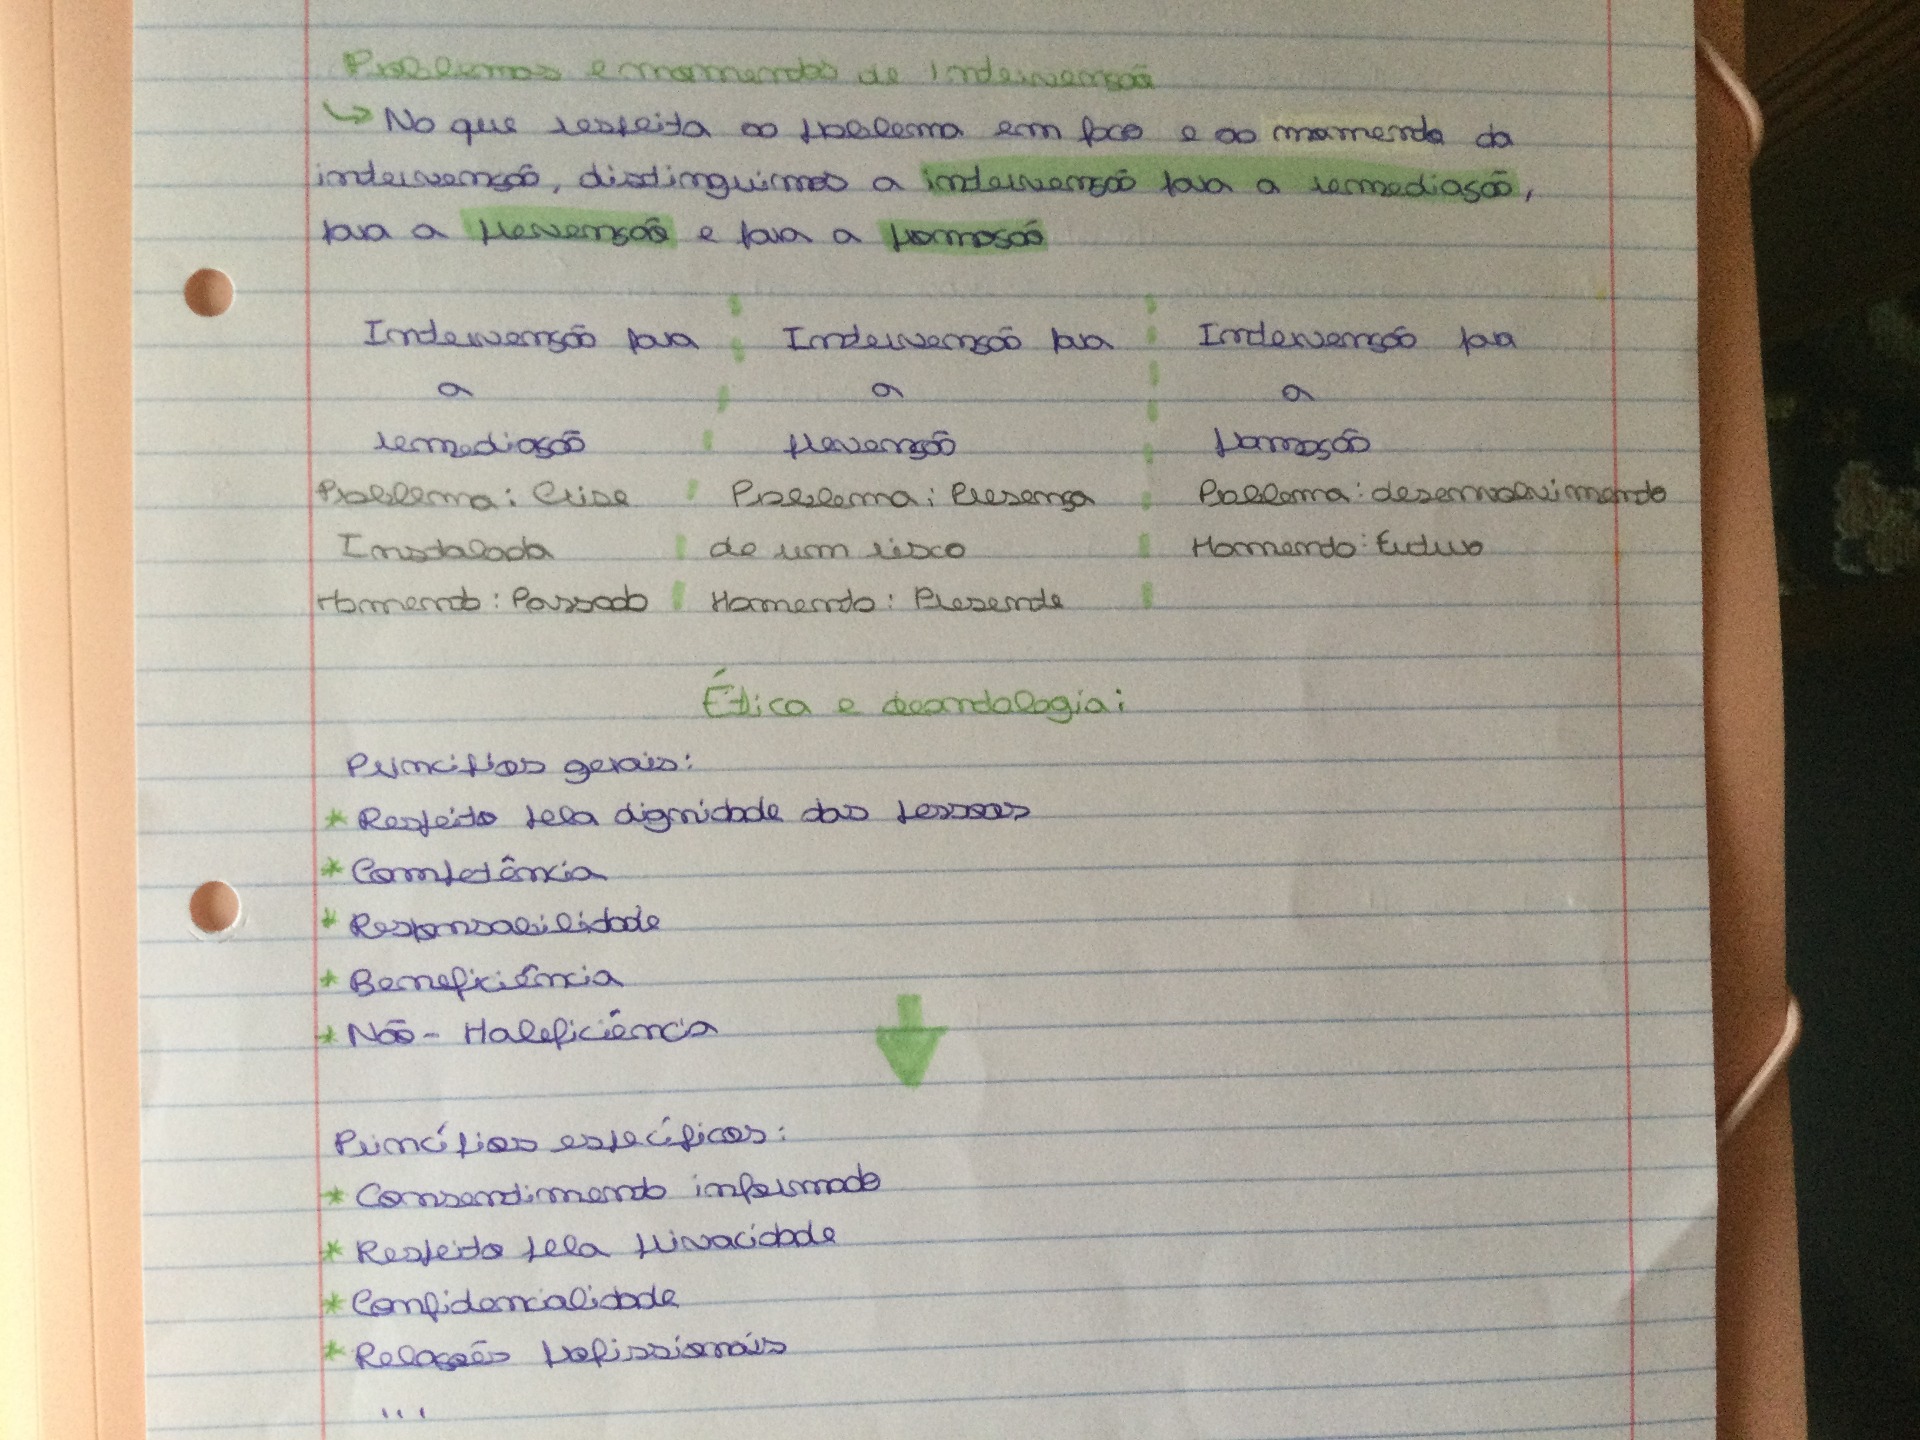 Problemas e momentos de Intervenção
↳ No que respeita ao problema em foco e ao momento da
intervenção, distinguimos a intervenção para a remediação,
para a prevenção e para a promoção
Intervenção para Intervenção para Intervenção para
a a a
remediação prevenção promoção
Problema: Crise Problema: Presença Problema: desenvolvimento
Instalada de um risco Momento: Futuro
Momento: Passado Momento: Presente
Ética e deontologia:
Princípios gerais:
* Respeito pela dignidade das pessoas
* Competência
* Responsabilidade
* Beneficiência
* Não-Maleficiência
Princípios específicos:
* Consentimento informado
* Respeito pela privacidade
* Confidencialidade
* Relações profissionais
...